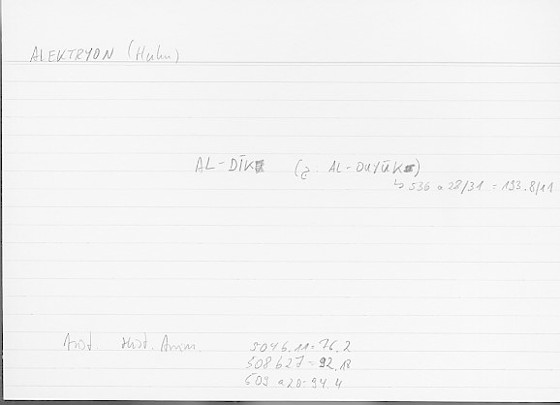 ALEKTRYON (Huhn)
AL-DĪK (ج. AL-DUYŪK)
↳ 536 a 28/31 = 193.8/11
Arist. Hist. Anim.
504 b 11 = 76.2
508 b 27 = 92.12
509 a 20 = 94.4